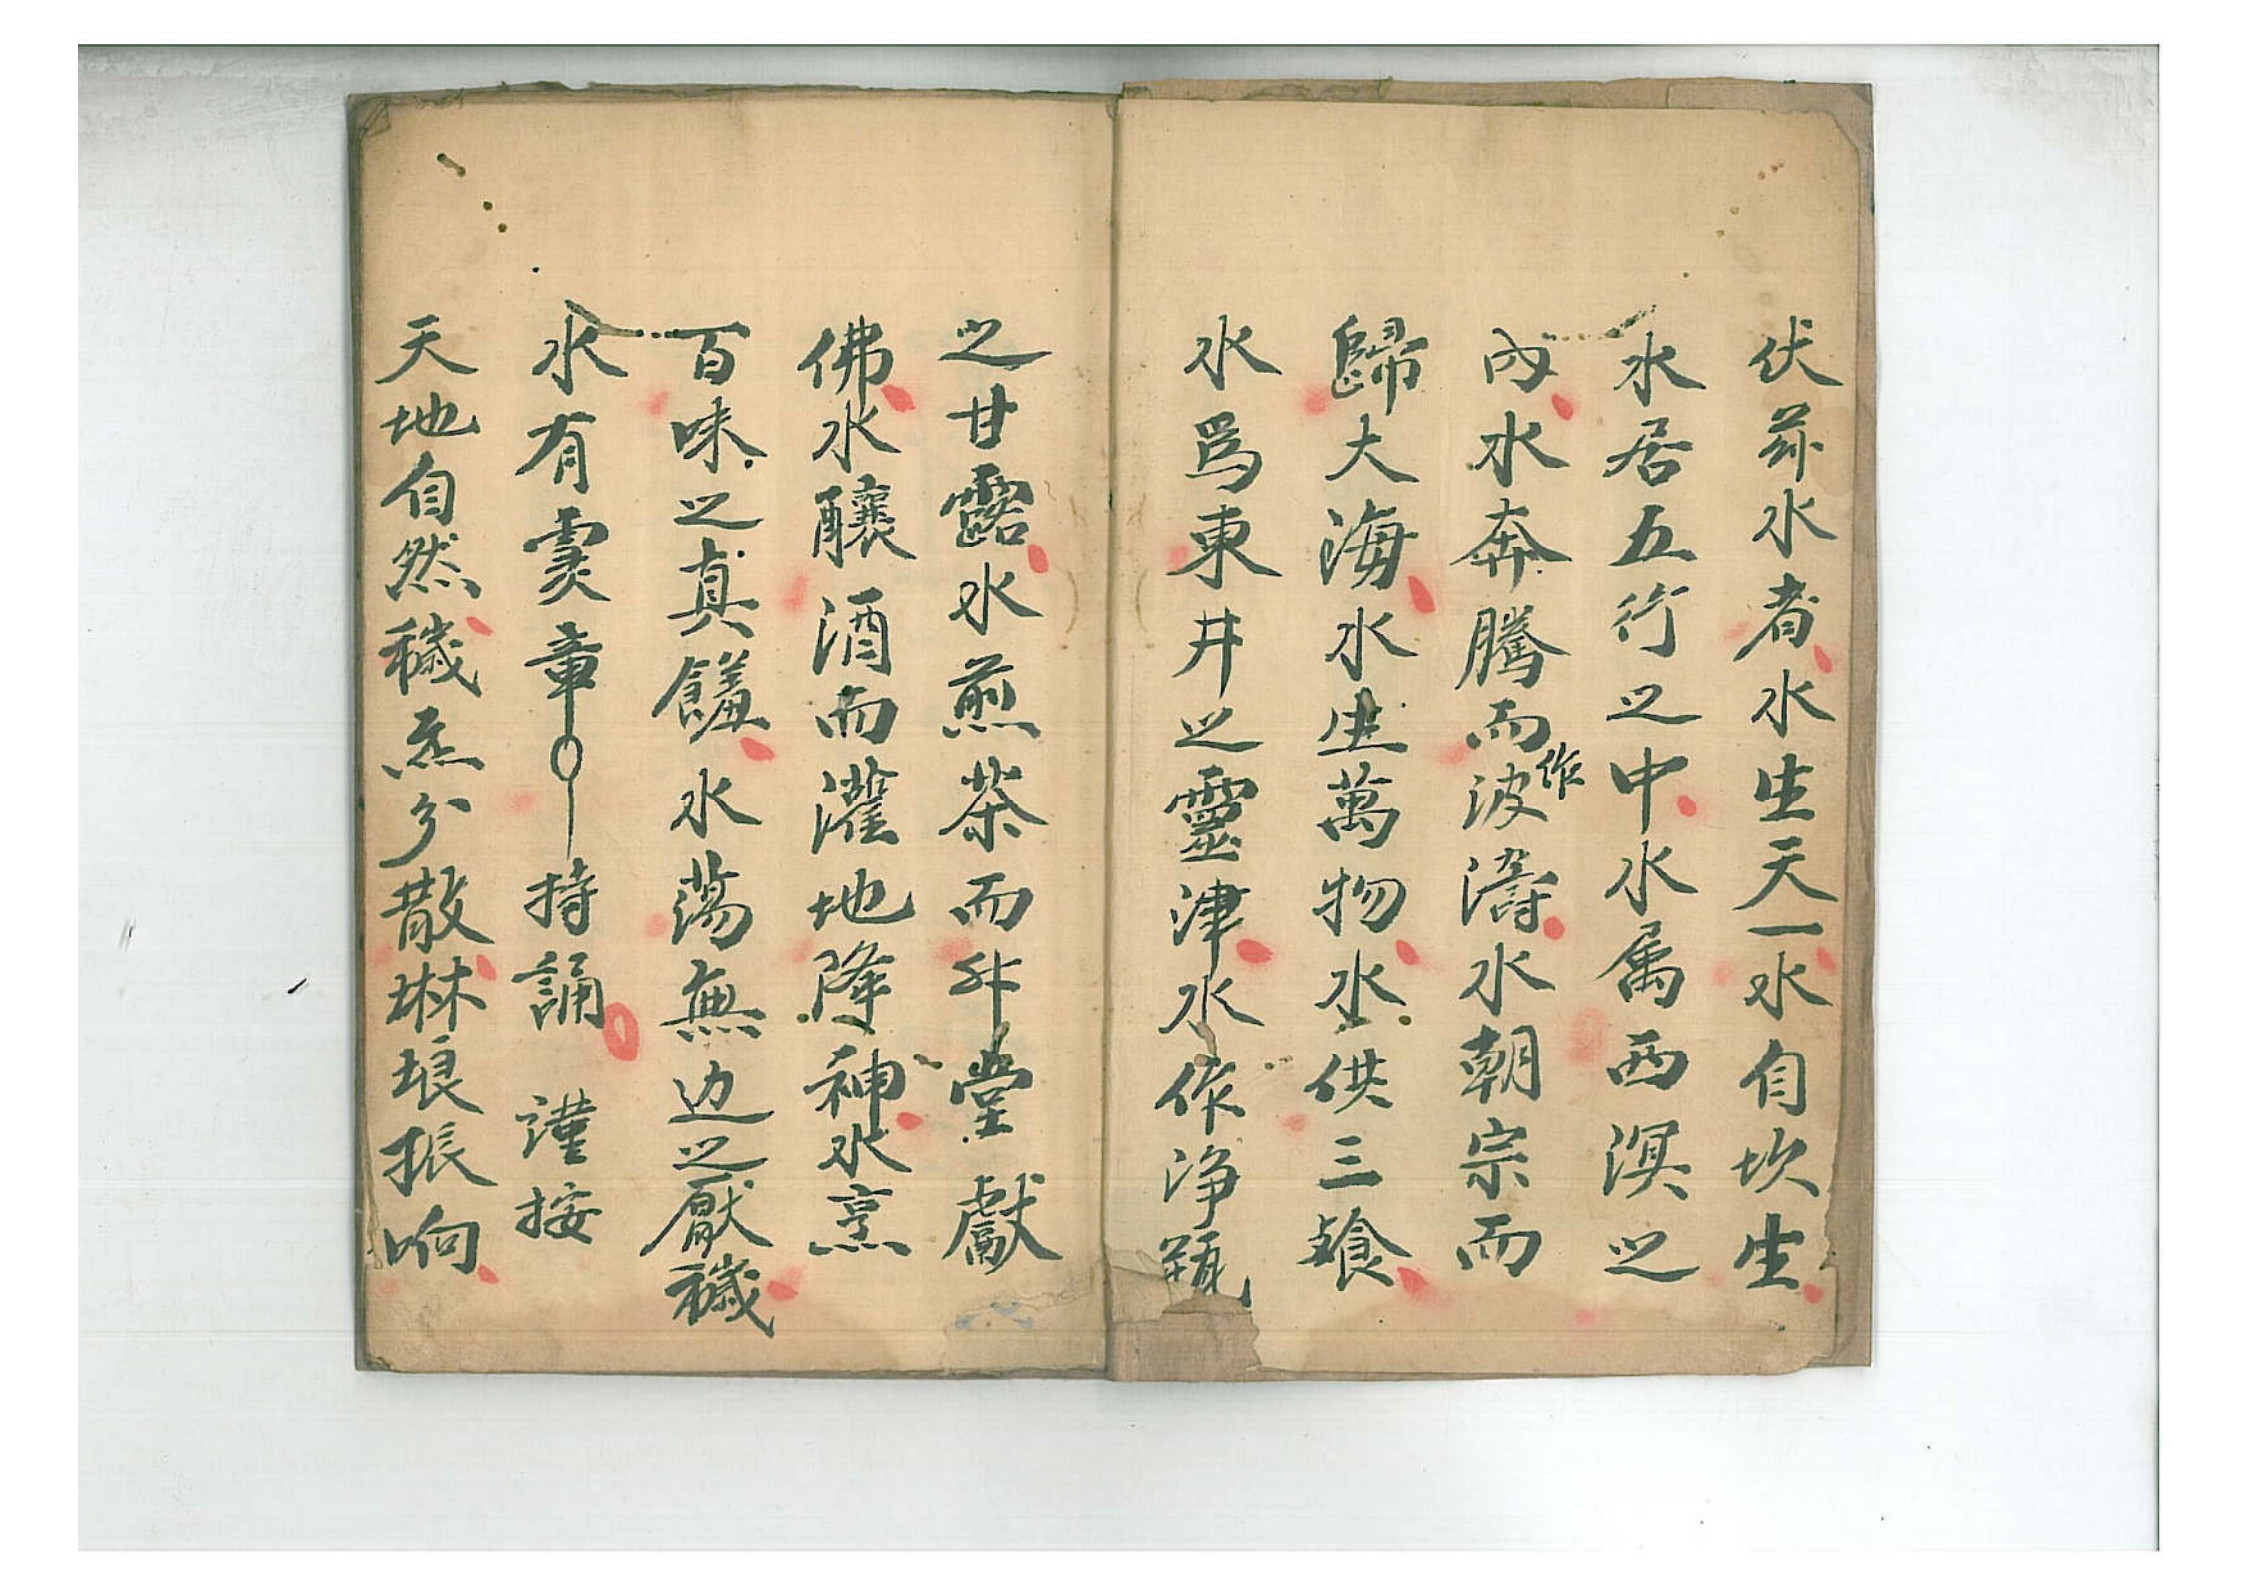 伏茲水者水生天一水自坎生
水居五行之中水属西溟之
內水奔騰而作波濤水朝宗而
歸大海水生萬物水供三飡
水爲東井之靈津水作净瓶
之甘露水煎茶而升堂獻
佛水釀酒而灌地降神水烹
百味之真饈水蕩無边之厭穢
水有霛章持誦 謹按
天地自然穢炁分散琳琅振响